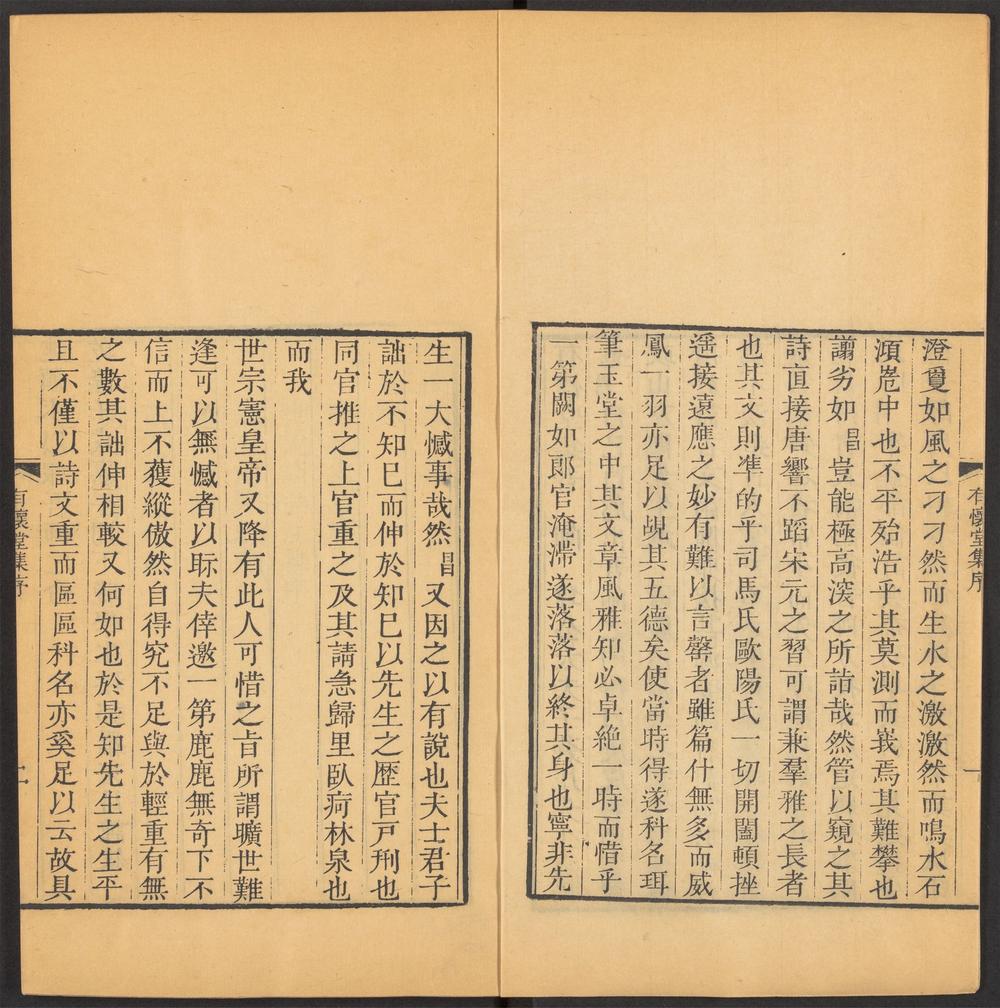 澄敻如風之刁刁然而生水之激激然而鳴水石
澒

中也不平殆浩乎其莫測而峩焉其難攀也
謭劣如昌豈能極高深之所詣哉然管以窺之其
詩直接唐響不蹈宋元之習可謂兼羣雅之長者
也其文則凖的乎司馬氏歐陽氏一切開闔頓挫
遥接遠應之妙有難以言罄者雖篇什無多而威
鳳一羽亦足以覘其五德矣使當時得遂科名珥
筆玉堂之中其文章風雅知必卓絶一時而惜乎
一第闕如郎官淹滯遂落落以終其身也寧非先
有懷堂集序
一
生一大憾事哉然昌又因之以有說也夫士君子
詘於不知巳而伸於知巳以先生之歷官戸刑也
同官推之上官重之及其請急歸里臥疴林泉也
而我
世宗憲皇帝又降有此人可惜之旨所謂曠世難
逢可以無憾者以眎夫倖邀一第鹿鹿無奇下不
信而上不獲縱傲然自得究不足與於輕重有無
之數其詘伸相較又何如也於是知先生之生平
且不僅以詩文重而區區科名亦奚足以云故具
有懷堂集序
二